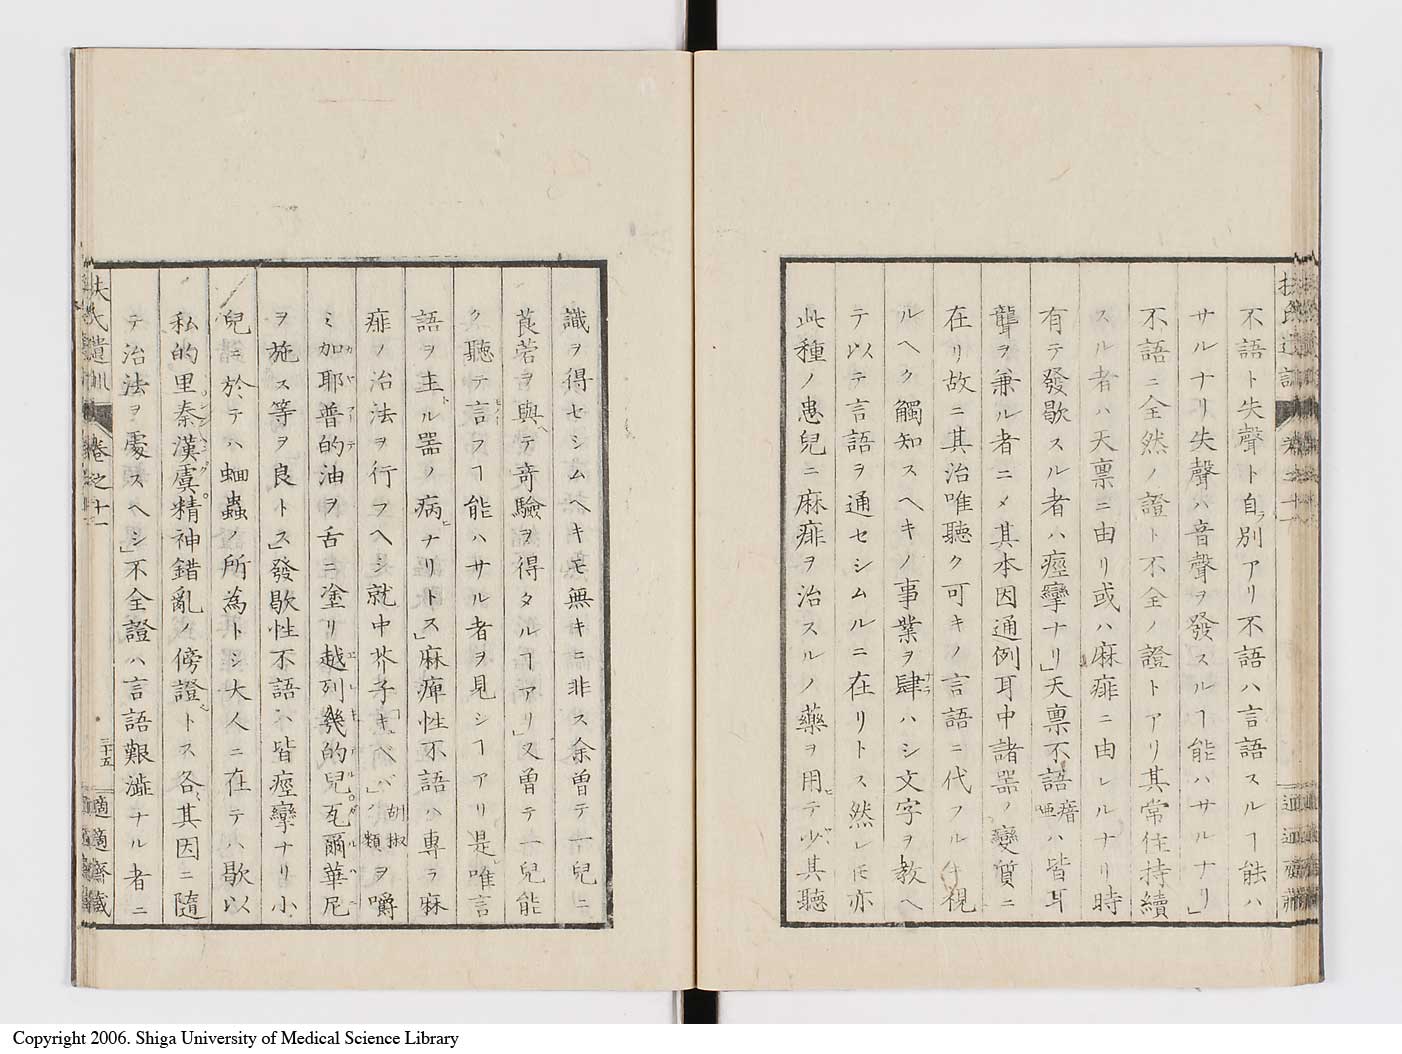 不語ト失聲ト自ラ別アリ不語ハ言語スルヿ能ハ
サルナリ失聲ハ音聲ヲ發スルヿ能ハサルナリ」
不語ニ全然ノ證ト不全ノ證トアリ其常住持續
スル者ハ天禀ニ由リ或ハ麻痱ニ由レルナリ時
有テ發歇スル者ハ痙攣ナリ」天禀不語瘖瘂ハ皆耳
聾ヲ兼ル者ニメ其本因通例耳中諸器ノ變質ニ
在リ故ニ其治唯聽ク可キノ言語ニ代フルニ視
ルヘク觸知スヘキノ事業ヲ肄ハシ文字ヲ教ヘ
テ以テ言語ヲ通セシムルニ在リトス然レ𪜈亦
此種ノ患兒ニ麻痱ヲ治スルノ藥ヲ用ヒテ少其聽
識ヲ得セシムヘキモ無キニ非ス余曽テ一兒ニ
莨菪ヲ與ヘテ奇驗ヲ得タルヿアリ」又曽テ一兒能
ク聽テ言フヿ能ハサル者ヲ見シヿアリ是レ唯言
語ヲ主トル器ノ病ナリトス」麻痺性不語ハ專ラ麻
痱ノ治法ヲ行フヘシ就中芥子「キュベバ」胡椒ノ類ヲ嚼
ミ加耶普的油ヲ舌ニ塗リ越列幾的兒瓦爾華尼
ヲ施ス等ヲ良トス」發歇性不語ハ皆痙攣ナリ小
兒ニ於テハ蛔蟲ノ所為トシ大人ニ在テハ歇以
私的里秦漢虞精神錯亂ノ傍證トス各其因ニ隨
テ治法ヲ處スヘシ」不全證ハ言語艱澁ナル者ニ
扶氏遺訓 卷之十一 三十五 適適齋藏
Copyright 2006. Shiga University of Medical Science Library